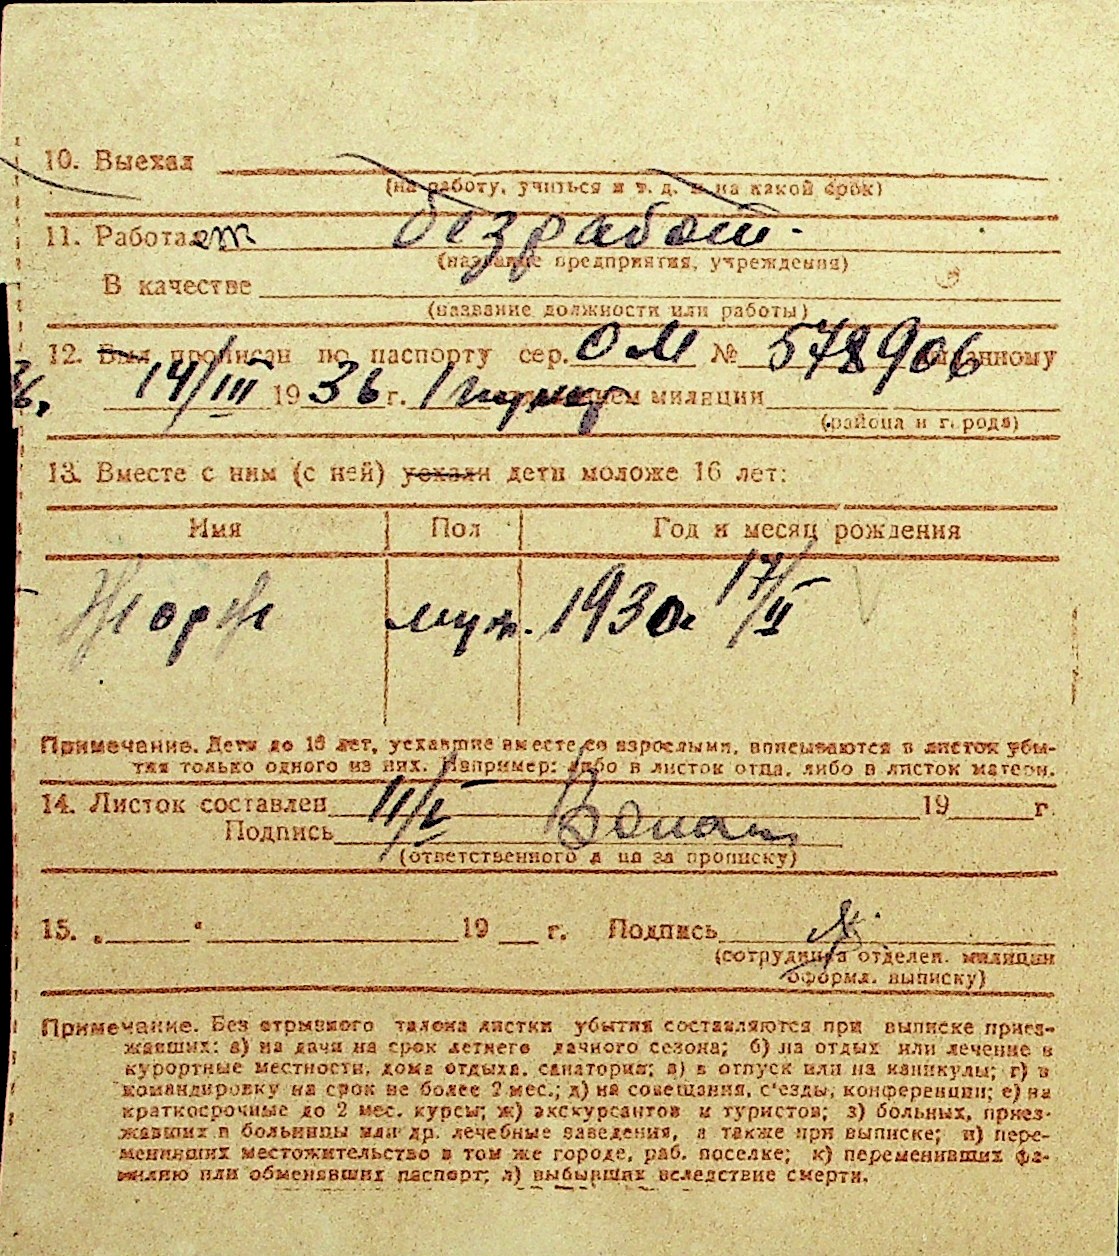 10. Выехал
(на работу, учиться и т. д. и на какой срок)
11. Работает безработ.
(название предприятия, учреждения)
В качестве
(название должности или работы)
12. Был прописан по паспорту сер. ОМ № 578906 выданному
14/III 1936 г. милиции
(района и города)
13. Вместе с ним (с ней) уехали дети моложе 16 лет:
Имя Пол Год и месяц рождения
Жорж муж. 1930г 17/II
Примечание. Дети до 16 лет, уехавшие вместе со взрослыми, вписываются в листок убы-
тия только одного из них. Например: либо в листок отца, либо в листок матери.
14. Листок составлен 11/V 19 г
Подпись
(ответственного л-ца за прописку)
15. „ “ 19 г. Подпись
(сотрудника отделен. милиции
оформл. выписку)
Примечание. Без отрывного талона листки убытия составляются при выписке приез-
жавших: а) на дачи на срок летнего дачного сезона; б) на отдых или лечение в
курортные местности, дома отдыха, санатории; в) в отпуск или на каникулы; г) в
командировку на срок не более 2 мес.; д) на совещания, с'езды, конференции; е) на
краткосрочные до 2 мес. курсы; ж) экскурсантов и туристов; з) больных, приез-
жавших в больницы или др. лечебные заведения, а также при выписке; и) пере-
менивших местожительство в том же городе, раб. поселке; к) переменивших фа-
милию или обменявших паспорт; л) выбывших вследствие смерти.